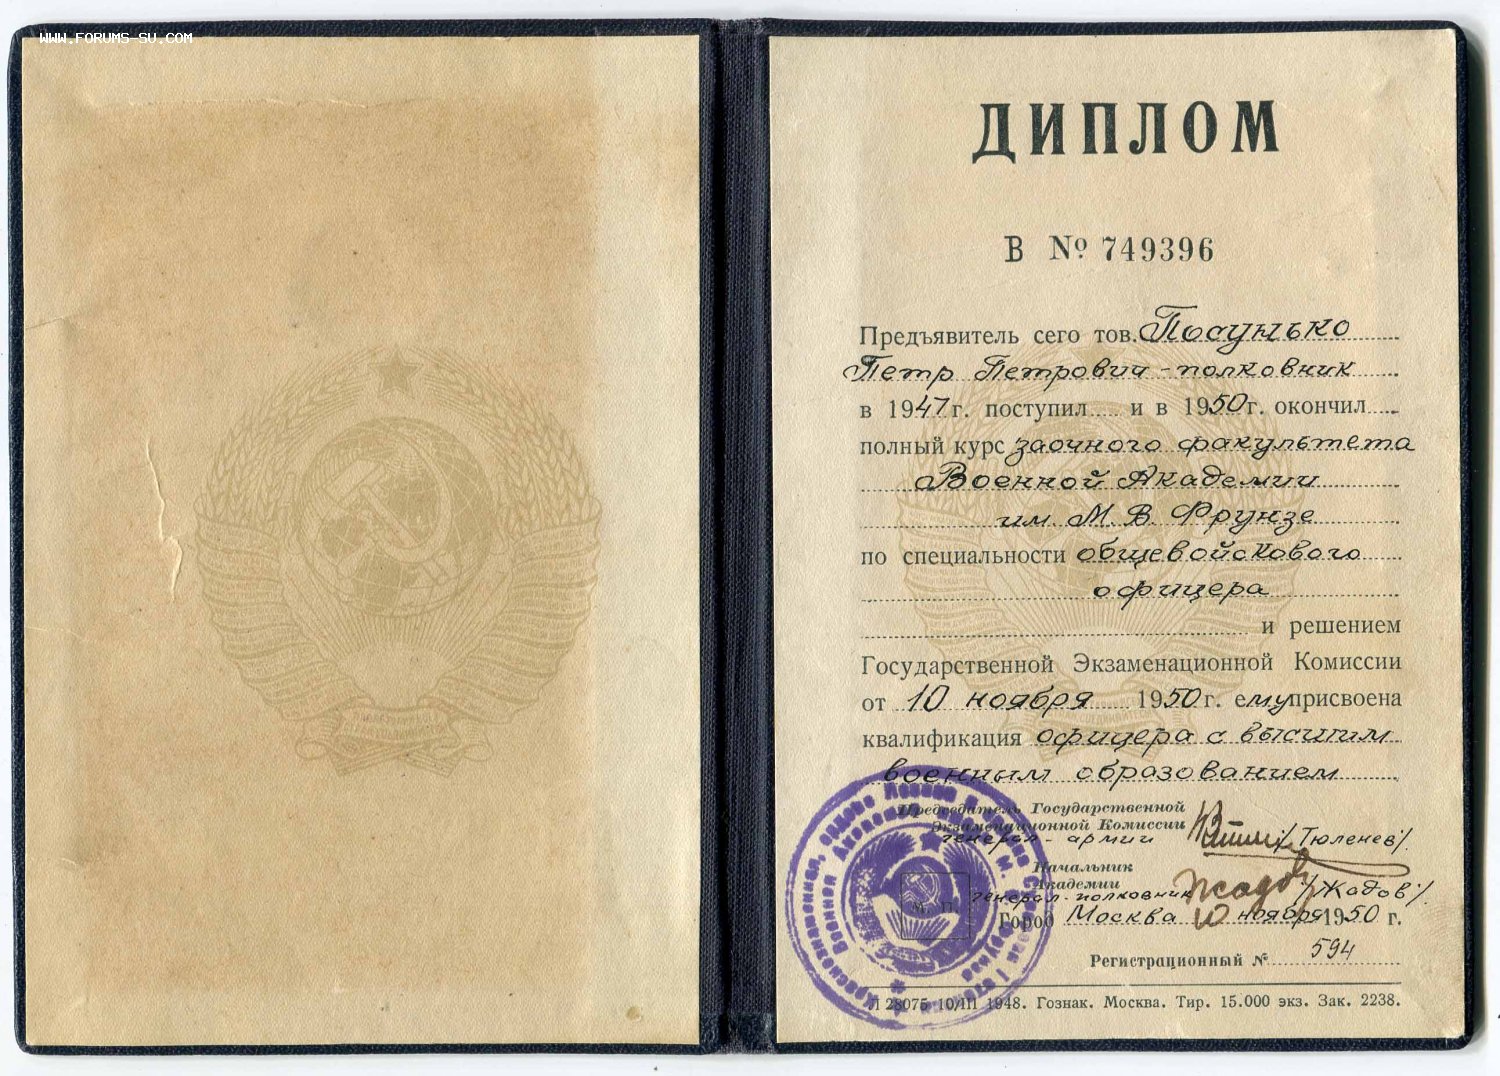 WWW.FORUMS-SU.COM
ДИПЛОМ
В № 749396
Предъявитель сего тов. Посунько
Петр Петрович - полковник
в 1947 г. поступил и в 1950 г. окончил
полный курс заочного факультета
Военной Академии
им. М. В. Фрунзе
по специальности общевойскового
офицера
и решением
Государственной Экзаменационной Комиссии
от 10 ноября 1950 г. ему присвоена
квалификация офицера с высшим
военным образованием
Председатель Государственной
Экзаменационной Комиссии
генерал - армии /Тюленев/.
Начальник
Академии
генерал-полковник Жадов /Жадов/.
М. П.
Город Москва 10 ноября 1950 г.
Регистрационный № 594
Л 28075 10/III 1948. Гознак. Москва. Тир. 15.000 экз. Зак. 2238.